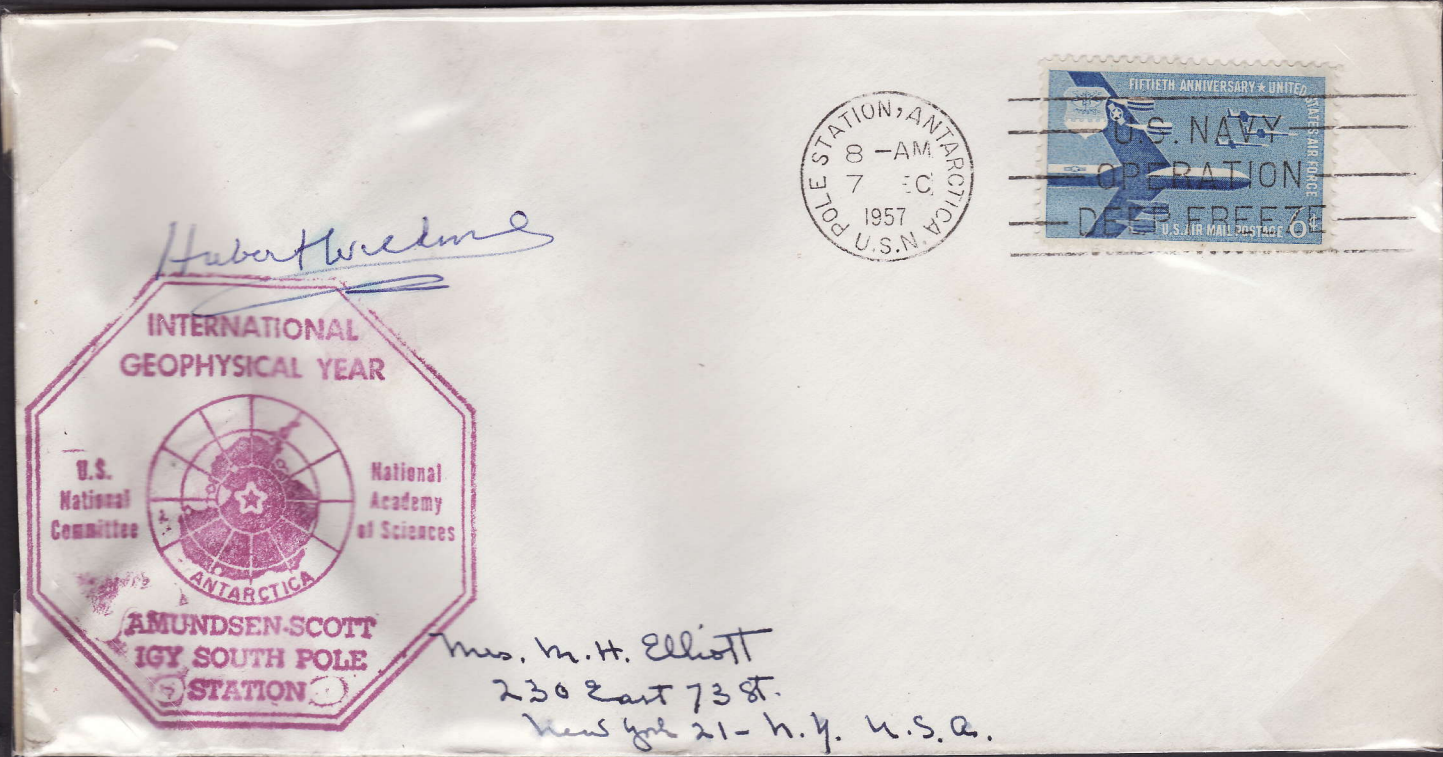 POLE STATION, ANTARCTICA
8 -AM
7 EC
1957
U.S.N.
FIFTIETH ANNIVERSARY ★ UNITED STATES AIR FORCE
U.S. NAVY
OPERATION
DEEP FREEZE
U.S. AIR MAIL POSTAGE 6¢
Hubert Wilkins
INTERNATIONAL
GEOPHYSICAL YEAR
U.S.
National
Committee
National
Academy
of Sciences
ANTARCTICA
AMUNDSEN-SCOTT
IGY SOUTH POLE
STATION
Mrs. M. H. Elliott
230 East 73 St.
New York 21 - N.Y. U.S.A.